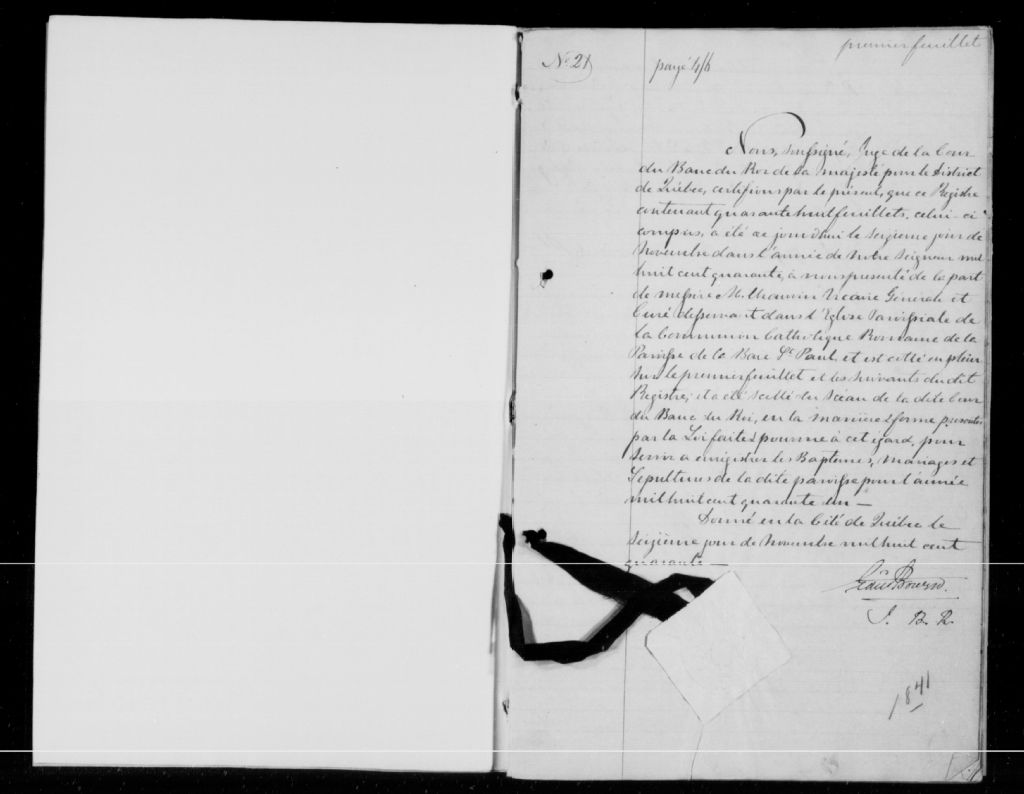 premier feuillet
No 21
payé 4/6
Nous, soussigné, Juge de la Cour
du Banc du Roi de Sa majesté pour le District
de Québec, certifions par le présent, que ce Registre
contenant quarante huit feuillets, celui-ci
compris, a été ce jourd'hui le seizieme jour de
Novembre dans l'année de Notre Seigneur mil
huit cent quarante, à nous presenté de la part
de messire Vicaire Général et
Curé desservant dans l'Eglise Paroissiale de
la Communion Catholique Romaine de la
Paroisse de la Baie St Paul et est cotté en plein
sur le premier feuillet et les suivants du dit
Registre; et a été scellé du Sceau de la dite Cour
du Banc du Roi, en la manière & forme prescrites
par la Loi faite & pourvue à cet égard, pour
servir a enregistrer les Baptemes, Mariages et
Sepultures de la dite paroisse pour l'année
mil huit cent quarante un —
Donné en la Cité de Québec le
Seizième jour de Novembre mil huit cent
quarante —
J. B. R.
1841